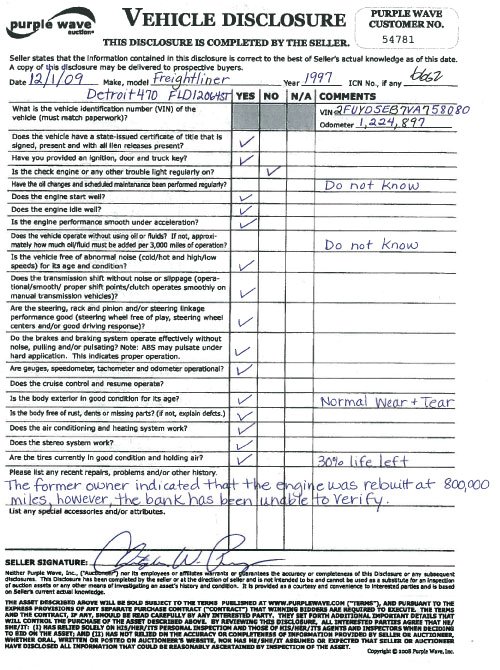 purple wave
auction
VEHICLE DISCLOSURE
PURPLE WAVE
CUSTOMER NO.
54781
THIS DISCLOSURE IS COMPLETED BY THE SELLER.
Seller states that the information contained in this disclosure is correct to the best of Seller's actual knowledge as of this date.
A copy of this disclosure may be delivered to prospective buyers.
Date 12/1/09 Make, model Freightliner Year 1997 ICN No., if any 6662
Detroit 470 FLD12064ST YES NO N/A COMMENTS
What is the vehicle identification number (VIN) of the
vehicle (must match paperwork)?
VIN 2FUYDSEB7VA758080
Odometer 1,224,897
Does the vehicle have a state-issued certificate of title that is
signed, present and with all lien releases present?
Have you provided an ignition, door and truck key?
Is the check engine or any other trouble light regularly on?
Have the oil changes and scheduled maintenance been performed regularly? Do not know
Does the engine start well?
Does the engine idle well?
Is the engine performance smooth under acceleration?
Does the vehicle operate without using oil or fluids? If not, approxi-
mately how much oil/fluid must be added per 3,000 miles of operation? Do not know
Is the vehicle free of abnormal noise (cold/hot and high/low
speeds) for its age and condition?
Does the transmission shift without noise or slippage (opera-
tional/smooth/ proper shift points/clutch operates smoothly on
manual transmission vehicles)?
Are the steering, rack and pinion and/or steering linkage
performance good (steering wheel free of play, steering wheel
centers and/or good driving response)?
Do the brakes and braking system operate effectively without
noise, pulling and/or pulsating? Note: ABS may pulsate under
hard application. This indicates proper operation.
Are gauges, speedometer, tachometer and odometer operational?
Does the cruise control and resume operate?
Is the body exterior in good condition for its age? Normal Wear + Tear
Is the body free of rust, dents or missing parts? (if not, explain defcts.)
Does the air conditioning and heating system work?
Does the stereo system work?
Are the tires currently in good condition and holding air? 30% life left
Please list any recent repairs, problems and/or other history.
The former owner indicated that the engine was rebuilt at 800,000
miles, however, the bank has been unable to verify.
List any special accessories and/or attributes.
SELLER SIGNATURE:
Neither Purple Wave, Inc. ("Auctioneer") nor its employees or affiliates warrants or guarantees the accuracy or completeness of this Disclosure or any subsequent
disclosures. This Disclosure has been completed by the seller or at the direction of seller and is not intended to be and cannot be used as a substitute for an inspection
of auction assets or any other means of investigating an asset's history and condition. It is provided as a courtesy and convenience to interested parties and is based
on Seller's current actual knowledge.
THE ASSET DESCRIBED ABOVE WILL BE SOLD SUBJECT TO THE TERMS PUBLISHED AT WWW.PURPLEWAVE.COM ("TERMS"), AND PURSUANT TO THE
EXPRESS PROVISIONS OF ANY SEPARATE PURCHASE CONTRACT ("CONTRACT") THAT WINNING BIDDERS ARE REQUIRED TO EXECUTE. THE TERMS
AND THE CONTRACT, IF ANY, SHOULD BE READ CAREFULLY BY ANY INTERESTED PARTY. THEY SET FORTH ADDITIONAL IMPORTANT DETAILS THAT
WILL CONTROL THE PURCHASE OF THE ASSET DESCRIBED ABOVE. BY REVIEWING THIS DISCLOSURE, ALL INTERESTED PARTIES AGREE THAT HE/
SHE/IT: (I) HAS RELIED SOLELY ON HIS/HER/ITS PERSONAL INSPECTION AND THOSE OF HIS/HER/ITS AGENTS AND INSPECTORS WHEN DECIDING
TO BID ON THE ASSET; AND (II) HAS NOT RELIED ON THE ACCURACY OR COMPLETENESS OF INFORMATION PROVIDED BY SELLER OR AUCTIONEER,
WHETHER ORAL, WRITTEN OR POSTED ON AUCTIONEER'S WEBSITE, NOR HAS HE/SHE/IT ASSUMED OR EXPECTED THAT SELLER OR AUCTIONEER
HAVE DISCLOSED ALL INFORMATION THAT COULD BE REASONABLY ASCERTAINED BY INSPECTION OF THE ASSET.
Copyright © 2008 Purple Wave, Inc.